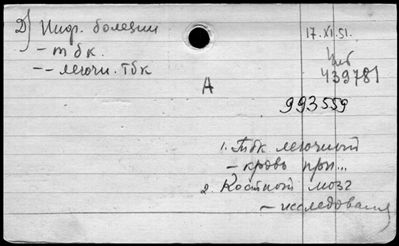 Д) Инф. болезни
17.XI.51.
- тбк.
-- легочн. тбк
439781
А
993559
1. Тбк легочный
- кровь при...
2. Костный мозг
- исследования